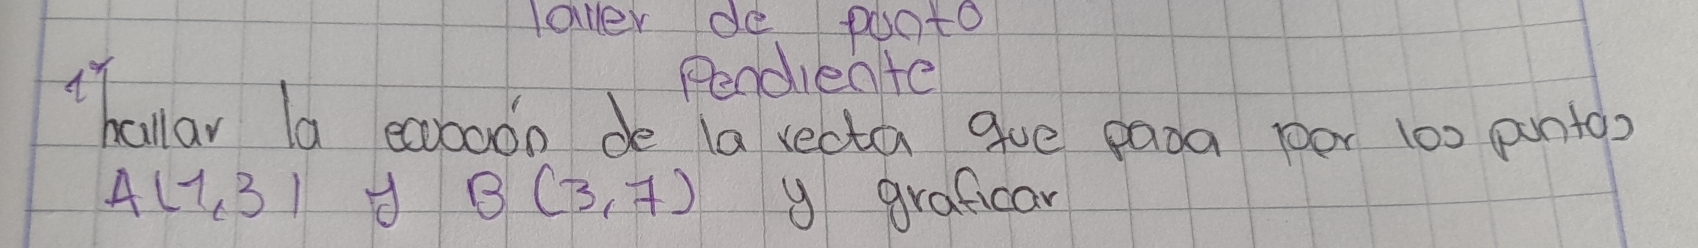 Taller de punto
Pendiente
1°
hallar la ecuación de la recta que pasa por los puntos
A(1,3) y B (3,7) y graficar